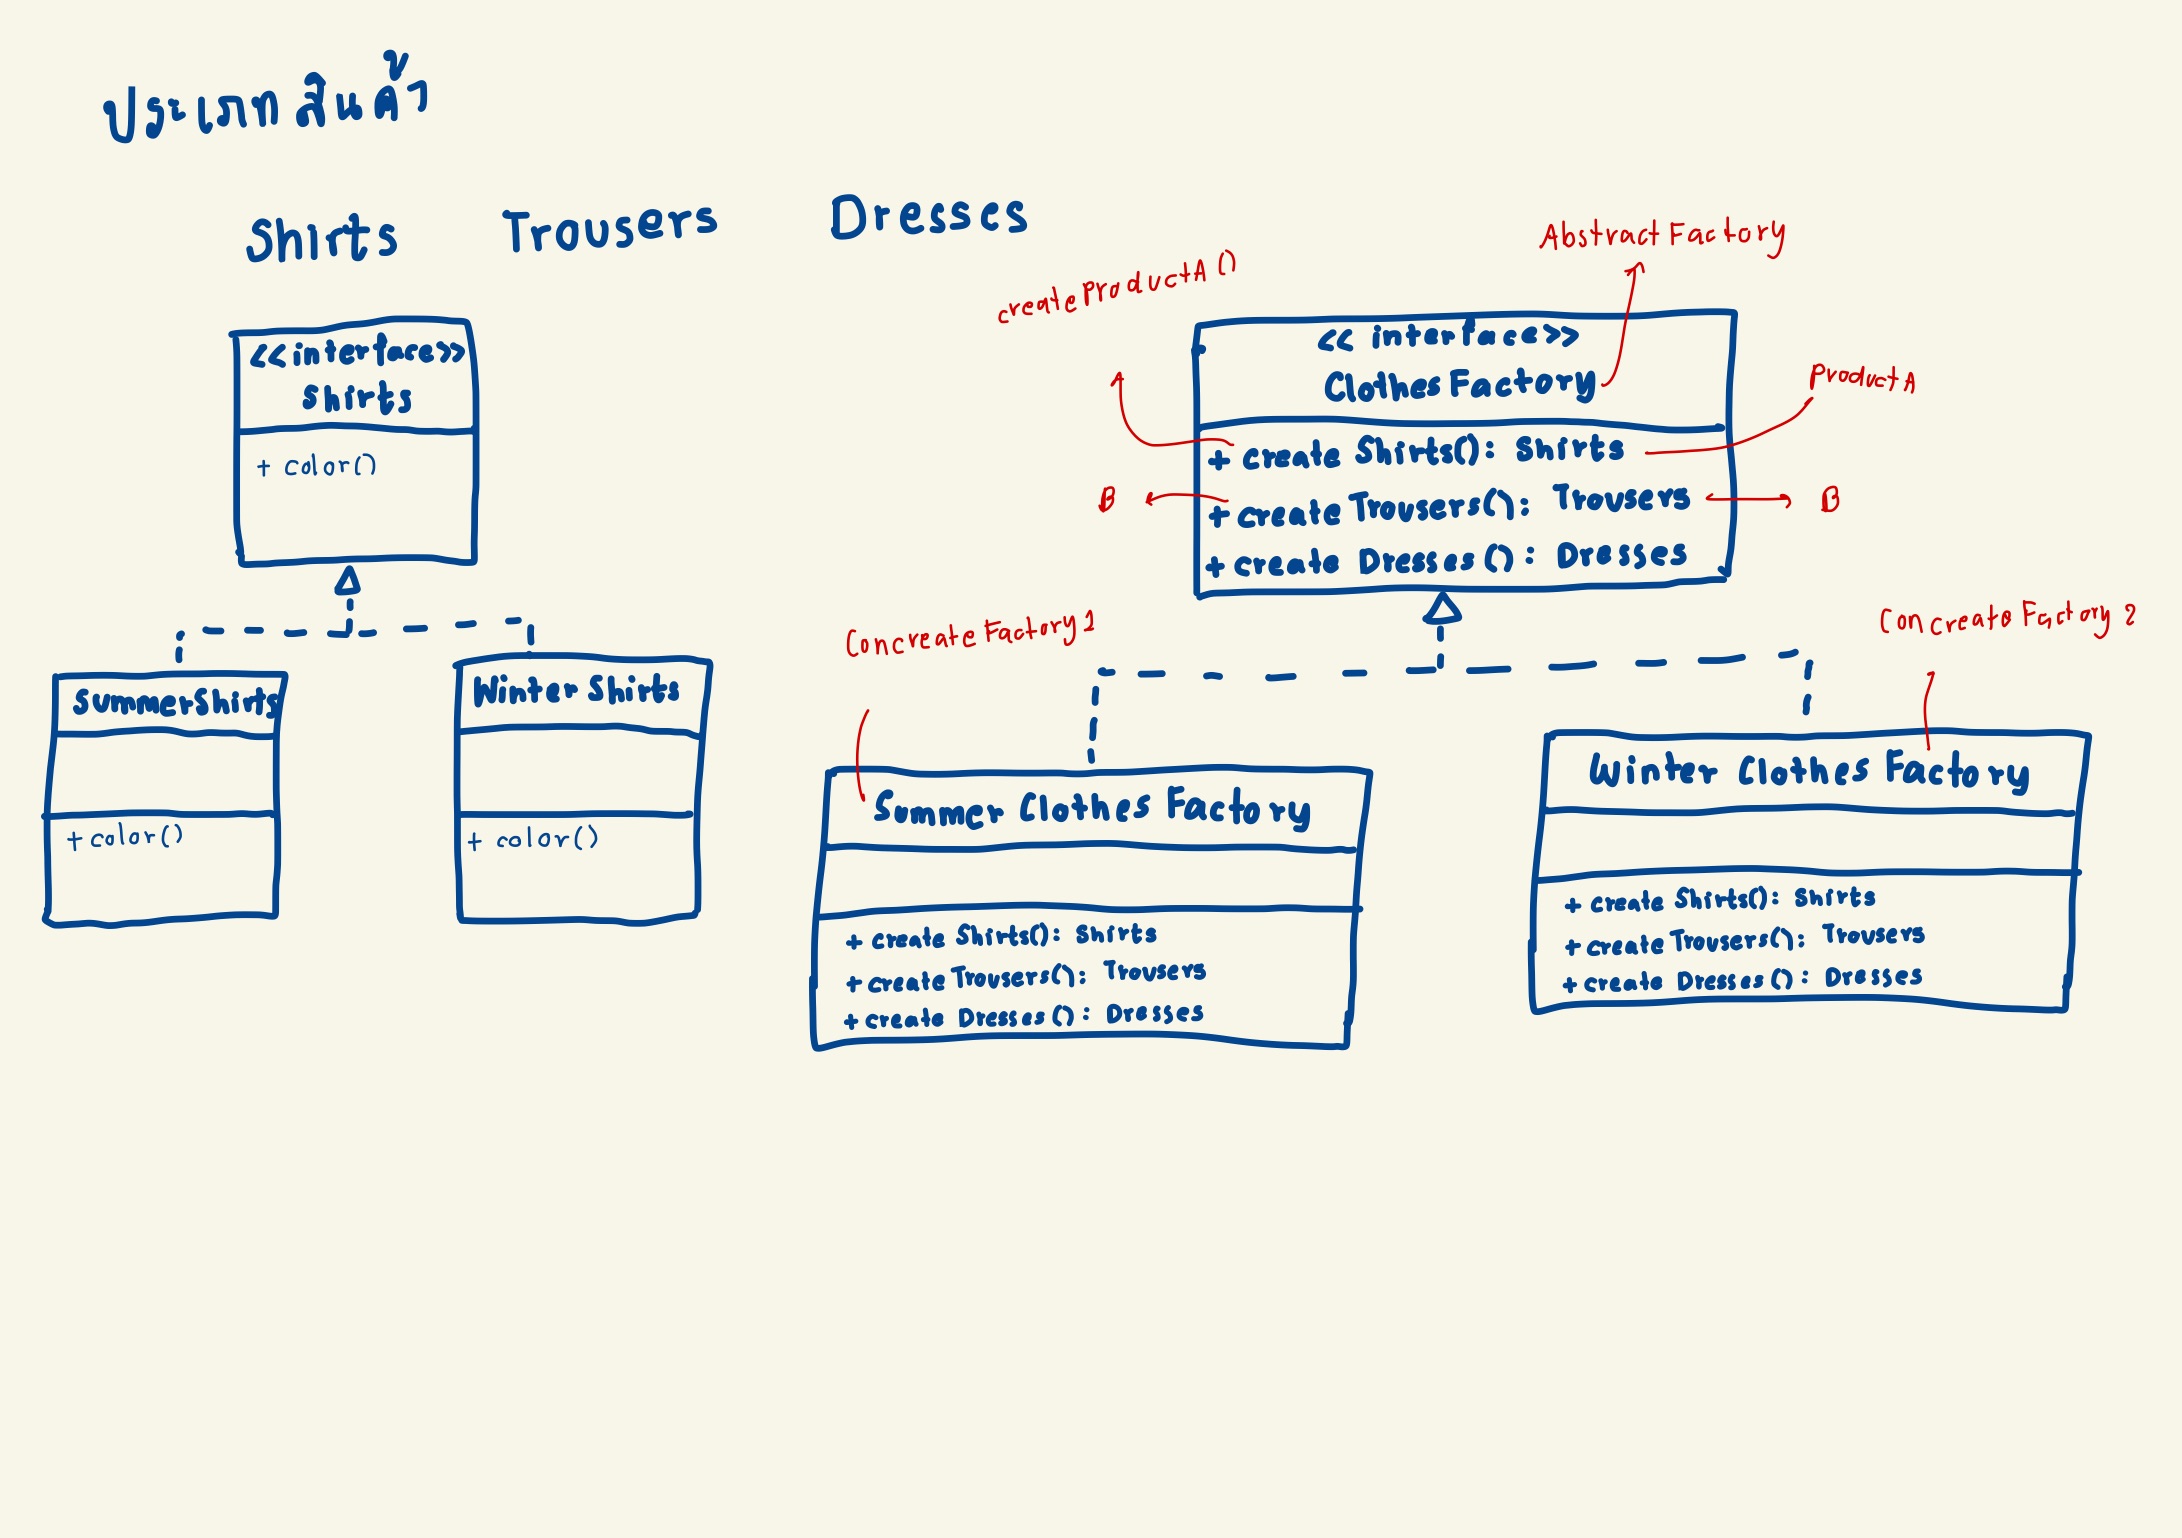 ประเภทสินค้า
Shirts Trousers Dresses
<<interface>>
Shirts
+ color()
SummerShirts
+ color()
Winter Shirts
+ color()
AbstractFactory
createProductA()
<< interface>>
Clothes Factory
ProductA
+ create Shirts(): Shirts
B + create Trousers(): Trousers B
+ create Dresses(): Dresses
ConcreateFactory 1
Summer Clothes Factory
+ create Shirts(): Shirts
+ create Trousers(): Trousers
+ create Dresses(): Dresses
Concreate Factory 2
Winter Clothes Factory
+ create Shirts(): Shirts
+ create Trousers(): Trousers
+ create Dresses(): Dresses